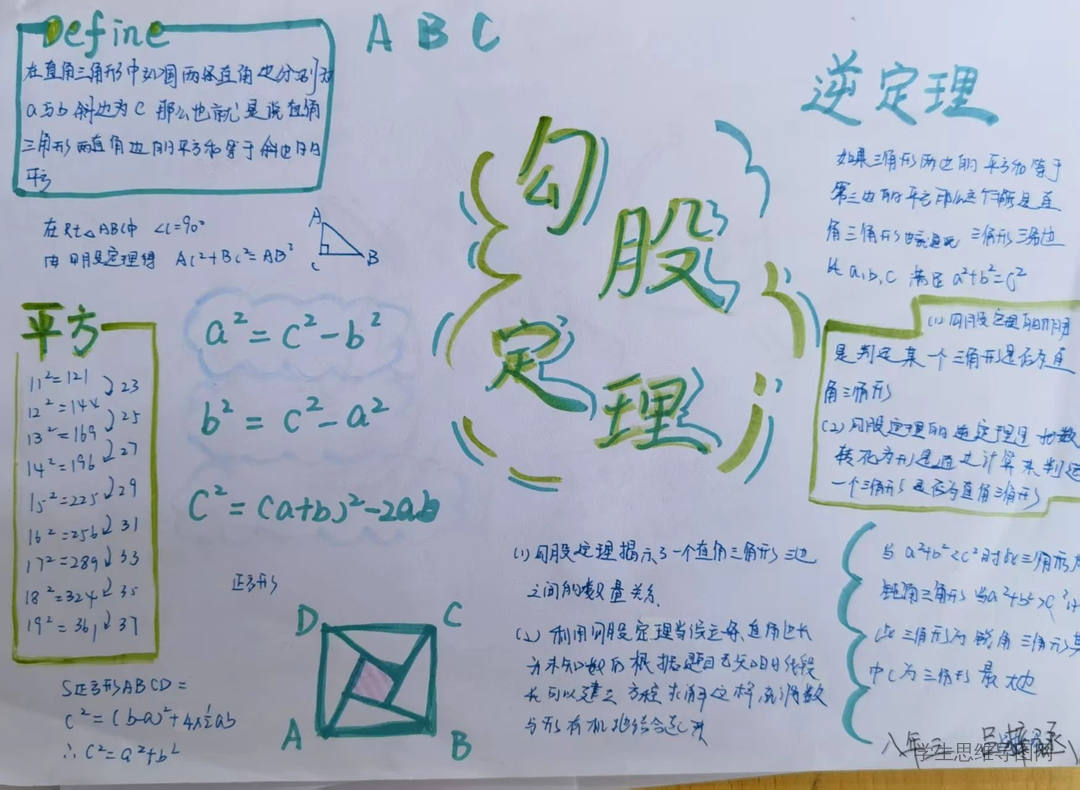 Define
在直角三角形中如果两条直角边分别为
a与b 斜边为c 那么也就是说直角
三角形两直角边的平方和等于斜边的
平方
在Rt△ABC中 ∠C=90°
由勾股定理得 AC²+BC²=AB²
A
C
B
A B C
勾
股
定
理
逆定理
如果三角形两边的平方和等于
第三边的平方那么这个 是直
角三角形 三角形三角边
a,b,c 满足 a²+b²=c²
(1) 勾股定理的
是判定某一个三角形是否为直
角三角形
(2) 勾股定理的逆定理是 数
转化为形是通过计算来判定
一个三角形是否为直角三角形
平方
11²=121
23
12²=144
25
13²=169
27
14²=196
29
15²=225
31
16²=256
33
17²=289
35
18²=324
37
19²=361
a²=c²-b²
b²=c²-a²
c²=(a+b)²-2ab
正方形
D
C
A
B
S正方形ABCD=
c²=(b-a)²+4×½ab
∴c²=a²+b²
(1)勾股定理揭示了一个直角三角形三边
之间的数量关系.
(2) 利用勾股定理当设 直角边长
为未知数后根据题目已 的线段
长可以建立方程求解这样 数
与形有机地结合起来
当a²+b²<c²时此三角形为
钝角三角形 当a²+b²>c²时
此三角形为锐角三角形其
中c为三角形最大边
八年三
学生思维导图网